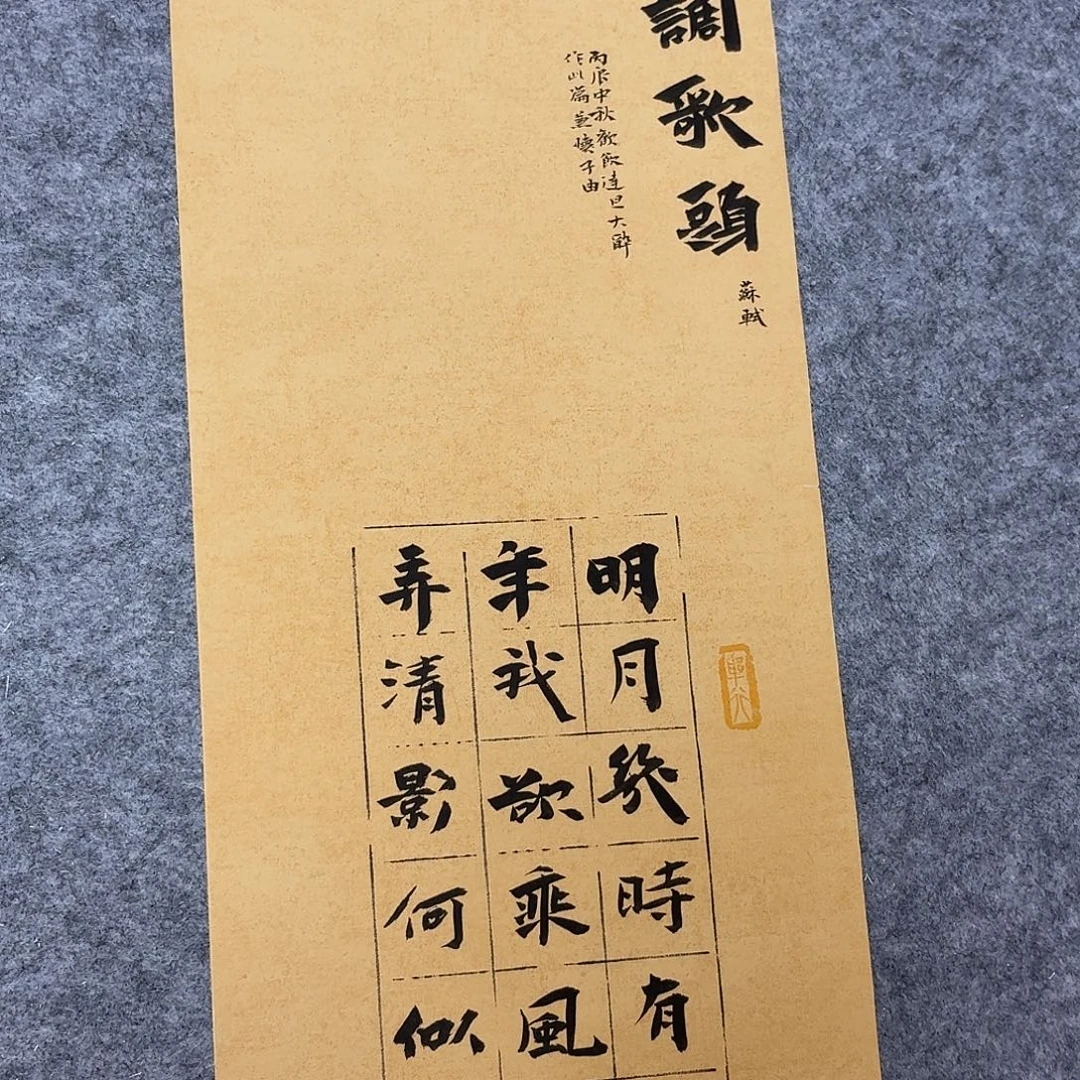 調歌頭
蘇軾
丙辰中秋歡飲達旦大醉
作此篇兼懷子由
明月幾時有
年我欲乘風
弄清影何似